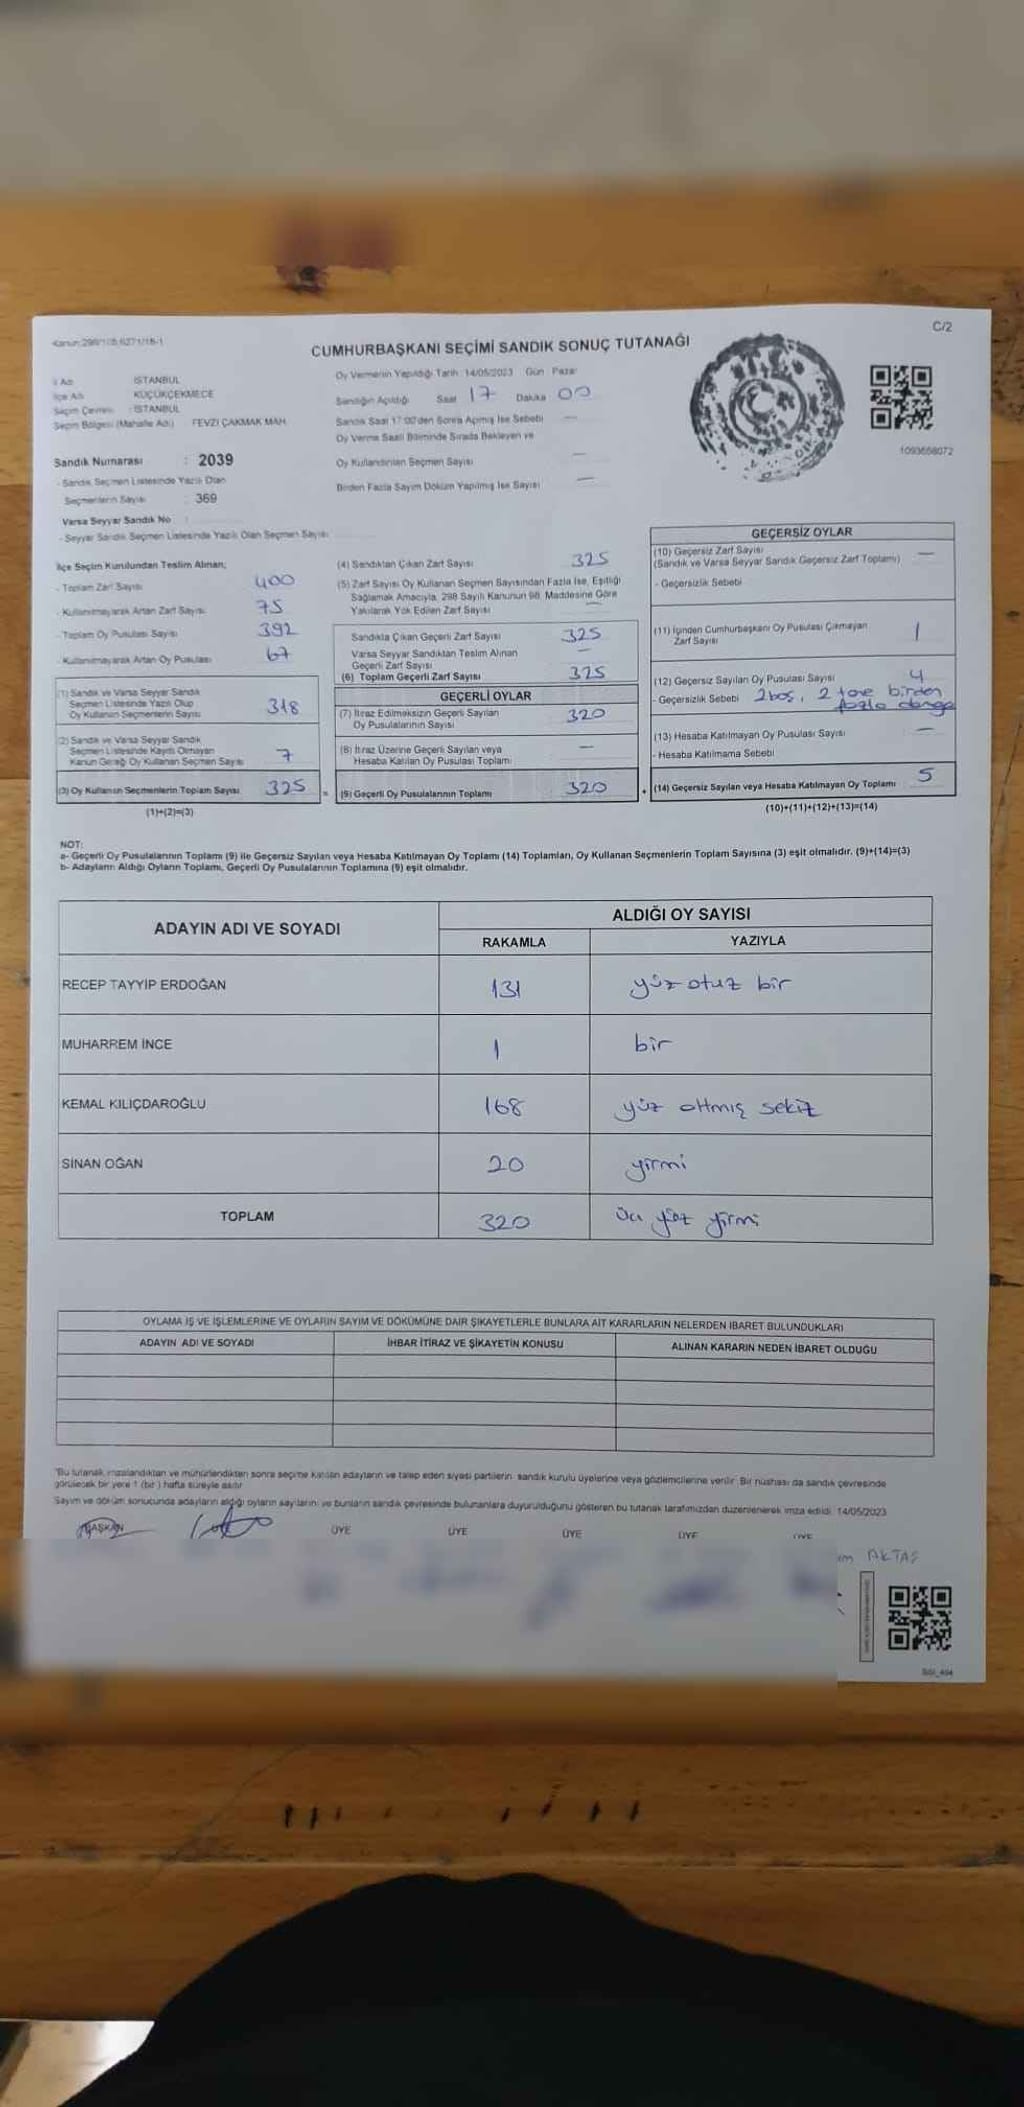 Kanun:298/105,6271/18-1
C/2
CUMHURBAŞKANI SEÇİMİ SANDIK SONUÇ TUTANAĞI
İl Adı : İSTANBUL
İlçe Adı : KÜÇÜKÇEKMECE
Seçim Çevresi : İSTANBUL
Seçim Bölgesi (Mahalle Adı) FEVZİ ÇAKMAK MAH.
Sandık Numarası : 2039
- Sandık Seçmen Listesinde Yazılı Olan
Seçmenlerin Sayısı : 369
Varsa Seyyar Sandık No :
- Seyyar Sandık Seçmen Listesinde Yazılı Olan Seçmen Sayısı
Oy Vermenin Yapıldığı Tarih :14/05/2023 Gün : Pazar
Sandığın Açıldığı Saat 17 Dakika 00
Sandık Saat 17:00'den Sonra Açılmış İse Sebebi —
Oy Verme Saati Bitiminde Sırada Bekleyen ve
Oy Kullandırılan Seçmen Sayısı —
Birden Fazla Sayım Döküm Yapılmış İse Sayısı —
1093658072
İlçe Seçim Kurulundan Teslim Alınan;
- Toplam Zarf Sayısı 400
- Kullanılmayarak Artan Zarf Sayısı 75
- Toplam Oy Pusulası Sayısı 392
- Kullanılmayarak Artan Oy Pusulası 67
(1) Sandık ve Varsa Seyyar Sandık
Seçmen Listesinde Yazılı Olup
Oy Kullanan Seçmenlerin Sayısı 318
(2) Sandık ve Varsa Seyyar Sandık
Seçmen Listesinde Kayıtlı Olmayan
Kanun Gereği Oy Kullanan Seçmen Sayısı 7
(3) Oy Kullanan Seçmenlerin Toplam Sayısı 325
(1)+(2)=(3)
(4) Sandıktan Çıkan Zarf Sayısı 325
(5) Zarf Sayısı Oy Kullanan Seçmen Sayısından Fazla İse, Eşitliği
Sağlamak Amacıyla, 298 Sayılı Kanunun 98. Maddesine Göre
Yakılarak Yok Edilen Zarf Sayısı —
Sandıkta Çıkan Geçerli Zarf Sayısı 325
Varsa Seyyar Sandıktan Teslim Alınan
Geçerli Zarf Sayısı —
(6) Toplam Geçerli Zarf Sayısı 325
GEÇERLİ OYLAR
(7) İtiraz Edilmeksizin Geçerli Sayılan
Oy Pusulalarının Sayısı 320
(8) İtiraz Üzerine Geçerli Sayılan veya
Hesaba Katılan Oy Pusulası Toplamı —
(9) Geçerli Oy Pusulalarının Toplamı 320
GEÇERSİZ OYLAR
(10) Geçersiz Zarf Sayısı
(Sandık ve Varsa Seyyar Sandık Geçersiz Zarf Toplamı) —
- Geçersizlik Sebebi
(11) İçinden Cumhurbaşkanı Oy Pusulası Çıkmayan
Zarf Sayısı 1
(12) Geçersiz Sayılan Oy Pusulası Sayısı 4
- Geçersizlik Sebebi 2 boş, 2 tane birden
fazla damga
(13) Hesaba Katılmayan Oy Pusulası Sayısı —
- Hesaba Katılmama Sebebi
(14) Geçersiz Sayılan veya Hesaba Katılmayan Oy Toplamı 5
(10)+(11)+(12)+(13)=(14)
NOT:
a- Geçerli Oy Pusulalarının Toplamı (9) ile Geçersiz Sayılan veya Hesaba Katılmayan Oy Toplamı (14) Toplamları, Oy Kullanan Seçmenlerin Toplam Sayısına (3) eşit olmalıdır. (9)+(14)=(3)
b- Adayların Aldığı Oyların Toplamı, Geçerli Oy Pusulalarının Toplamına (9) eşit olmalıdır.
ADAYIN ADI VE SOYADI ALDIĞI OY SAYISI
RAKAMLA YAZIYLA
RECEP TAYYİP ERDOĞAN 131 yüz otuz bir
MUHARREM İNCE 1 bir
KEMAL KILIÇDAROĞLU 168 yüz altmış sekiz
SİNAN OĞAN 20 yirmi
TOPLAM 320 üç yüz yirmi
OYLAMA İŞ VE İŞLEMLERİNE VE OYLARIN SAYIM VE DÖKÜMÜNE DAİR ŞİKAYETLERLE BUNLARA AİT KARARLARIN NELERDEN İBARET BULUNDUKLARI
ADAYIN ADI VE SOYADI İHBAR İTİRAZ VE ŞİKAYETİN KONUSU ALINAN KARARIN NEDEN İBARET OLDUĞU
"Bu tutanak, imzalandıktan ve mühürlendikten sonra seçime katılan adayların ve talep eden siyasi partilerin sandık kurulu üyelerine veya gözlemcilerine verilir. Bir nüshası da sandık çevresinde
görülecek bir yere 1 (bir) hafta süreyle asılır.
Sayım ve döküm sonucunda adayların aldığı oyların sayılarını ve bunların sandık çevresinde bulunanlara duyurulduğunu gösteren bu tutanak tarafımızdan düzenlenerek imza edildi. 14/05/2023
BAŞKAN ÜYE ÜYE ÜYE ÜYE ÜYE
AKTAŞ